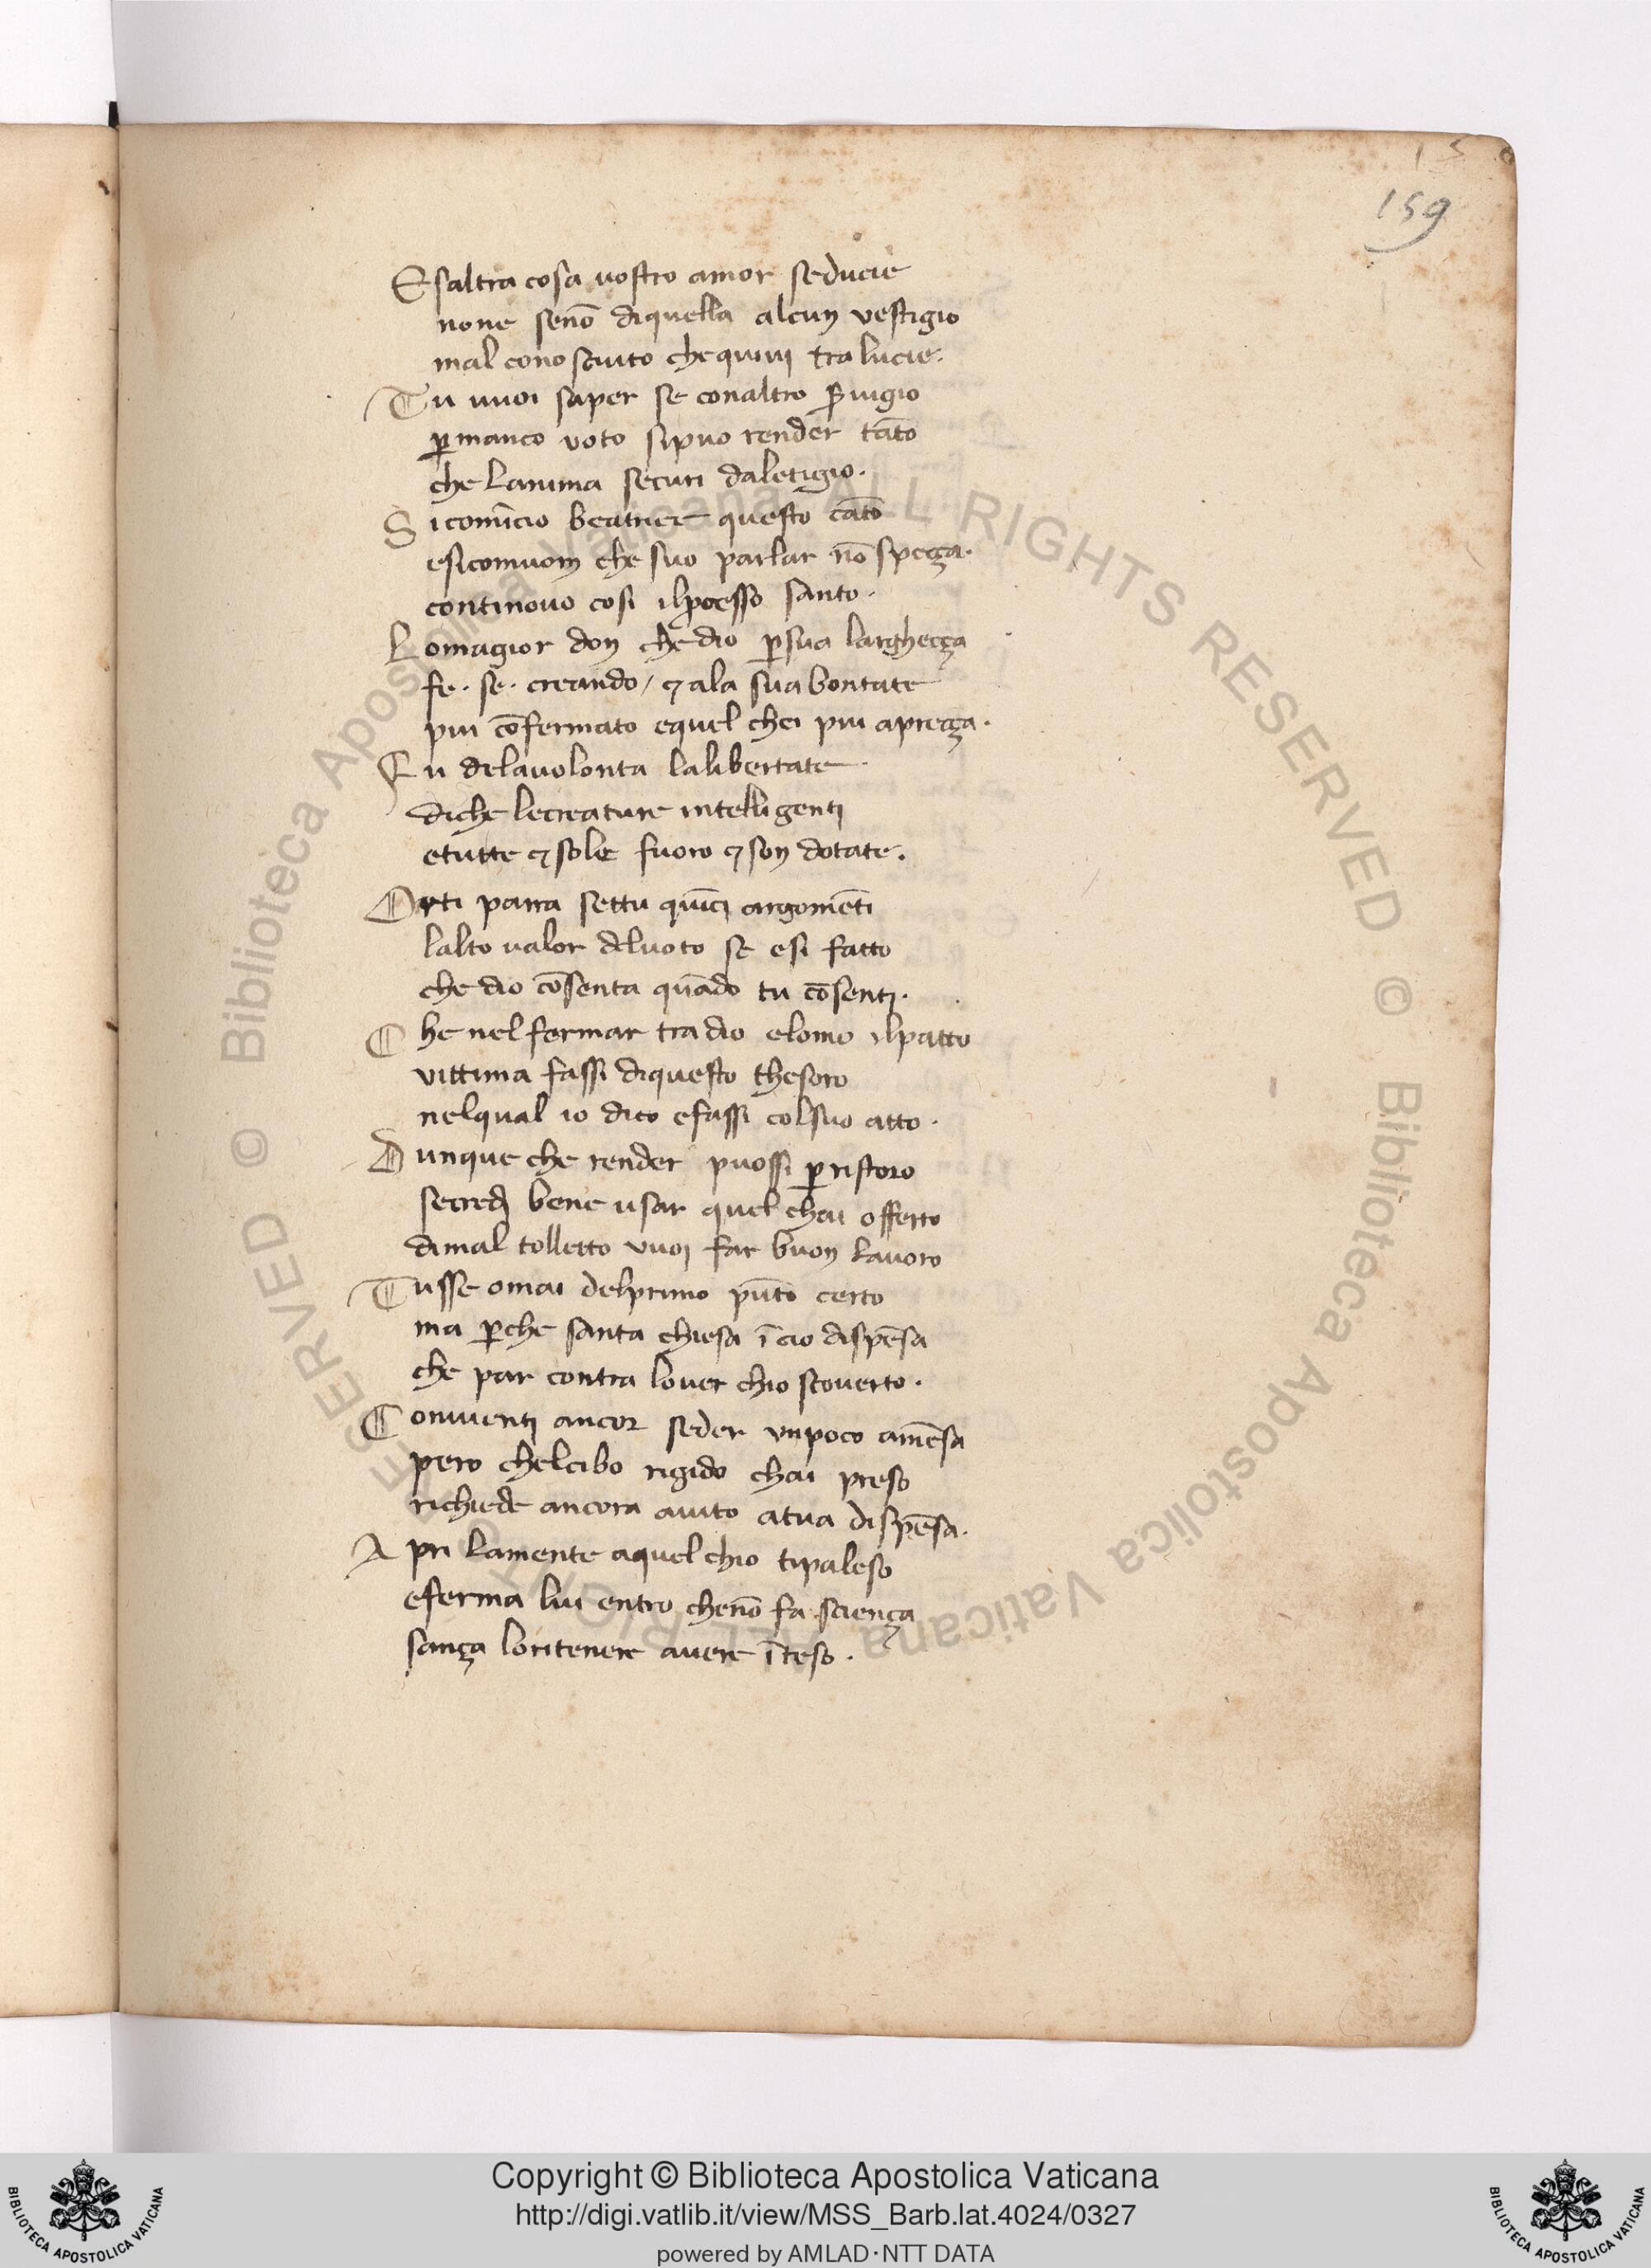 159
Esaltra cosa uostro amor seducie
none senō diquella alcun vestigio
mal conosciuto chequiui tra lucie.
Tu uuoi saper se conaltro ꝑuigio
ꝑmanco voto sipuo render tāto
che Lanima securi daletigio.
Si comīcio beatrice questo cāto
esicomuom che suo parlar nō speçça.
continouo cosi ilpcesso santo.
Lomagior don che dio ꝑsua larghecça
fe. se. creando / ⁊ ala sua bontate
piu cōfermato equel chei piu aprecça.
Fu delauolonta lalibertate
diche lecreature intelligenti
etutte ⁊ sole fuoro ⁊ son dotate.
Orti parra settu quīci argomēti
lalto ualor deluoto se esi fatto
che dio cōsenta quādo tu cōsenti.
Che nel fermar tra dio elomo ilpatto
vittima fassi diquesto thesoro
nelqual io dico efassi colsuo atto.
Dunque che render puossi ꝑristoro
secredi bene usar quel chai offerto
dimal tolletto vuoi far buon lauoro
Tusse omai delprimo pūto certo
ma ꝑche santa chiesa ī cio dispēsa
che par contra louer chio scouerto.
Conuienti ancor seder vnpoco amēsa
pero chelcibo rigido chai preso
richiede ancora aiuto atua dispēsa.
Apri Lamente aquel chio tipaleso
eferma lui entro chenō fa sciença
sança loritenere auere īteso.
© Biblioteca Apostolica Vaticana ALL RIGHTS RESERVED
© Biblioteca Apostolica Vaticana ALL RIGHTS RESERVED
BIBLIOTECA APOSTOLICA VATICANA
Copyright © Biblioteca Apostolica Vaticana
http://digi.vatlib.it/view/MSS_Barb.lat.4024/0327
powered by AMLAD·NTT DATA
BIBLIOTECA APOSTOLICA VATICANA